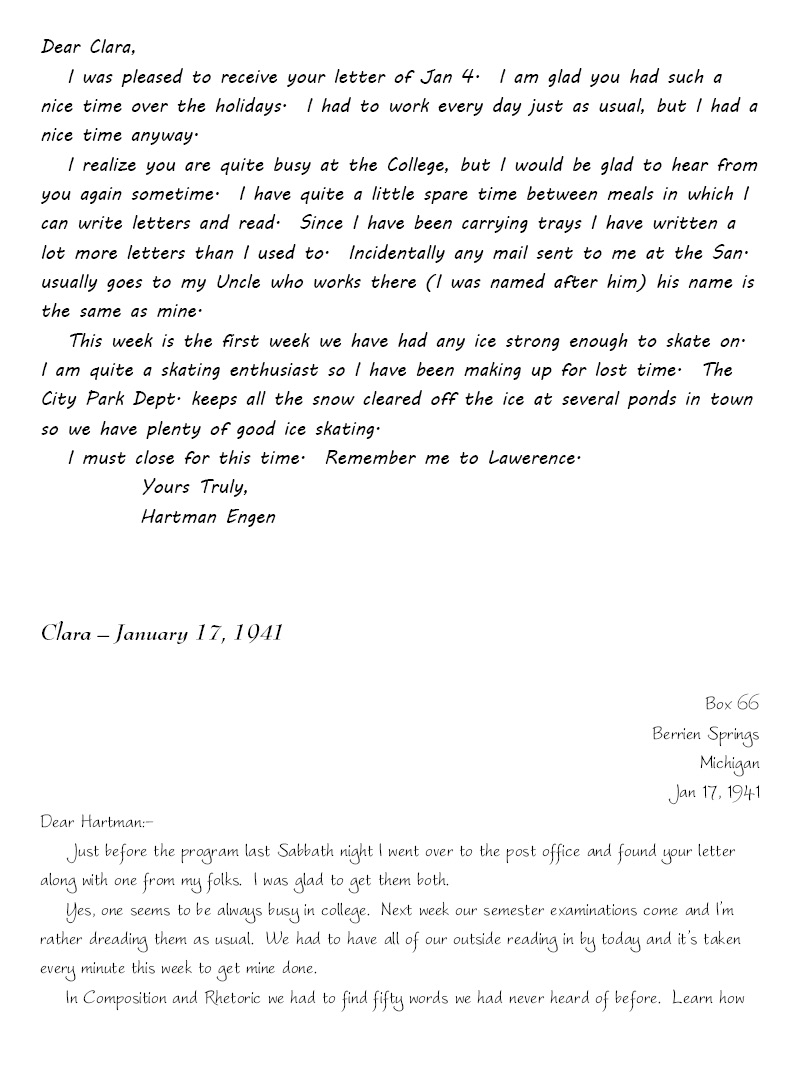 Dear Clara,
I was pleased to receive your letter of Jan 4.  I am glad you had such a
nice time over the holidays.  I had to work every day just as usual, but I had a
nice time anyway.
I realize you are quite busy at the College, but I would be glad to hear from
you again sometime.  I have quite a little spare time between meals in which I
can write letters and read.  Since I have been carrying trays I have written a
lot more letters than I used to.  Incidentally any mail sent to me at the San.
usually goes to my Uncle who works there (I was named after him) his name is
the same as mine.
This week is the first week we have had any ice strong enough to skate on.
I am quite a skating enthusiast so I have been making up for lost time.  The
City Park Dept. keeps all the snow cleared off the ice at several ponds in town
so we have plenty of good ice skating.
I must close for this time.  Remember me to Lawerence.
Yours Truly,
Hartman Engen
Clara – January 17, 1941
Box 66
Berrien Springs
Michigan
Jan 17, 1941
Dear Hartman:–
Just before the program last Sabbath night I went over to the post office and found your letter
along with one from my folks.  I was glad to get them both.
Yes, one seems to be always busy in college.  Next week our semester examinations come and I'm
rather dreading them as usual.  We had to have all of our outside reading in by today and it's taken
every minute this week to get mine done.
In Composition and Rhetoric we had to find fifty words we had never heard of before.  Learn how